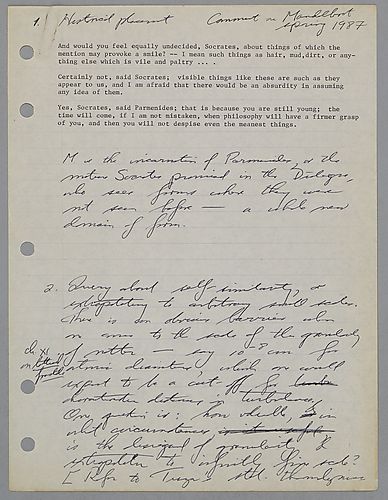 1. Historical placement Comment on Mandelbrot
spring 1987
And would you feel equally undecided, Socrates, about things of which the
mention may provoke a smile? -- I mean such things as hair, mud,dirt, or any-
thing else which is vile and paltry ... .
Certainly not, said Socrates; visible things like these are such as they
appear to us, and I am afraid that there would be an absurdity in assuming
any idea of them.
Yes, Socrates, said Parmenides; that is because you are still young; the
time will come, if I am not mistaken, when philosophy will have a firmer grasp
of you, and then you will not despise even the meanest things.
M is the incarnation of Parmenides, or the
mature Socrates promised in the Dialogue,
who sees forms where they were
not seen before — a whole new
domain of form.
2. Query about self similarity, or
extrapolating to arbitrary small scales.
There is an obvious barrier when
we come to the scale of the granularity
of matter — say 10⁻⁸ cm for
atomic diameters, which one would
expect to be a cut off for
distances in turbulence.
One question is: how valid, in
what circumstances
is the
extrapolation to infinitely fine scale?
[ Refer to stat.